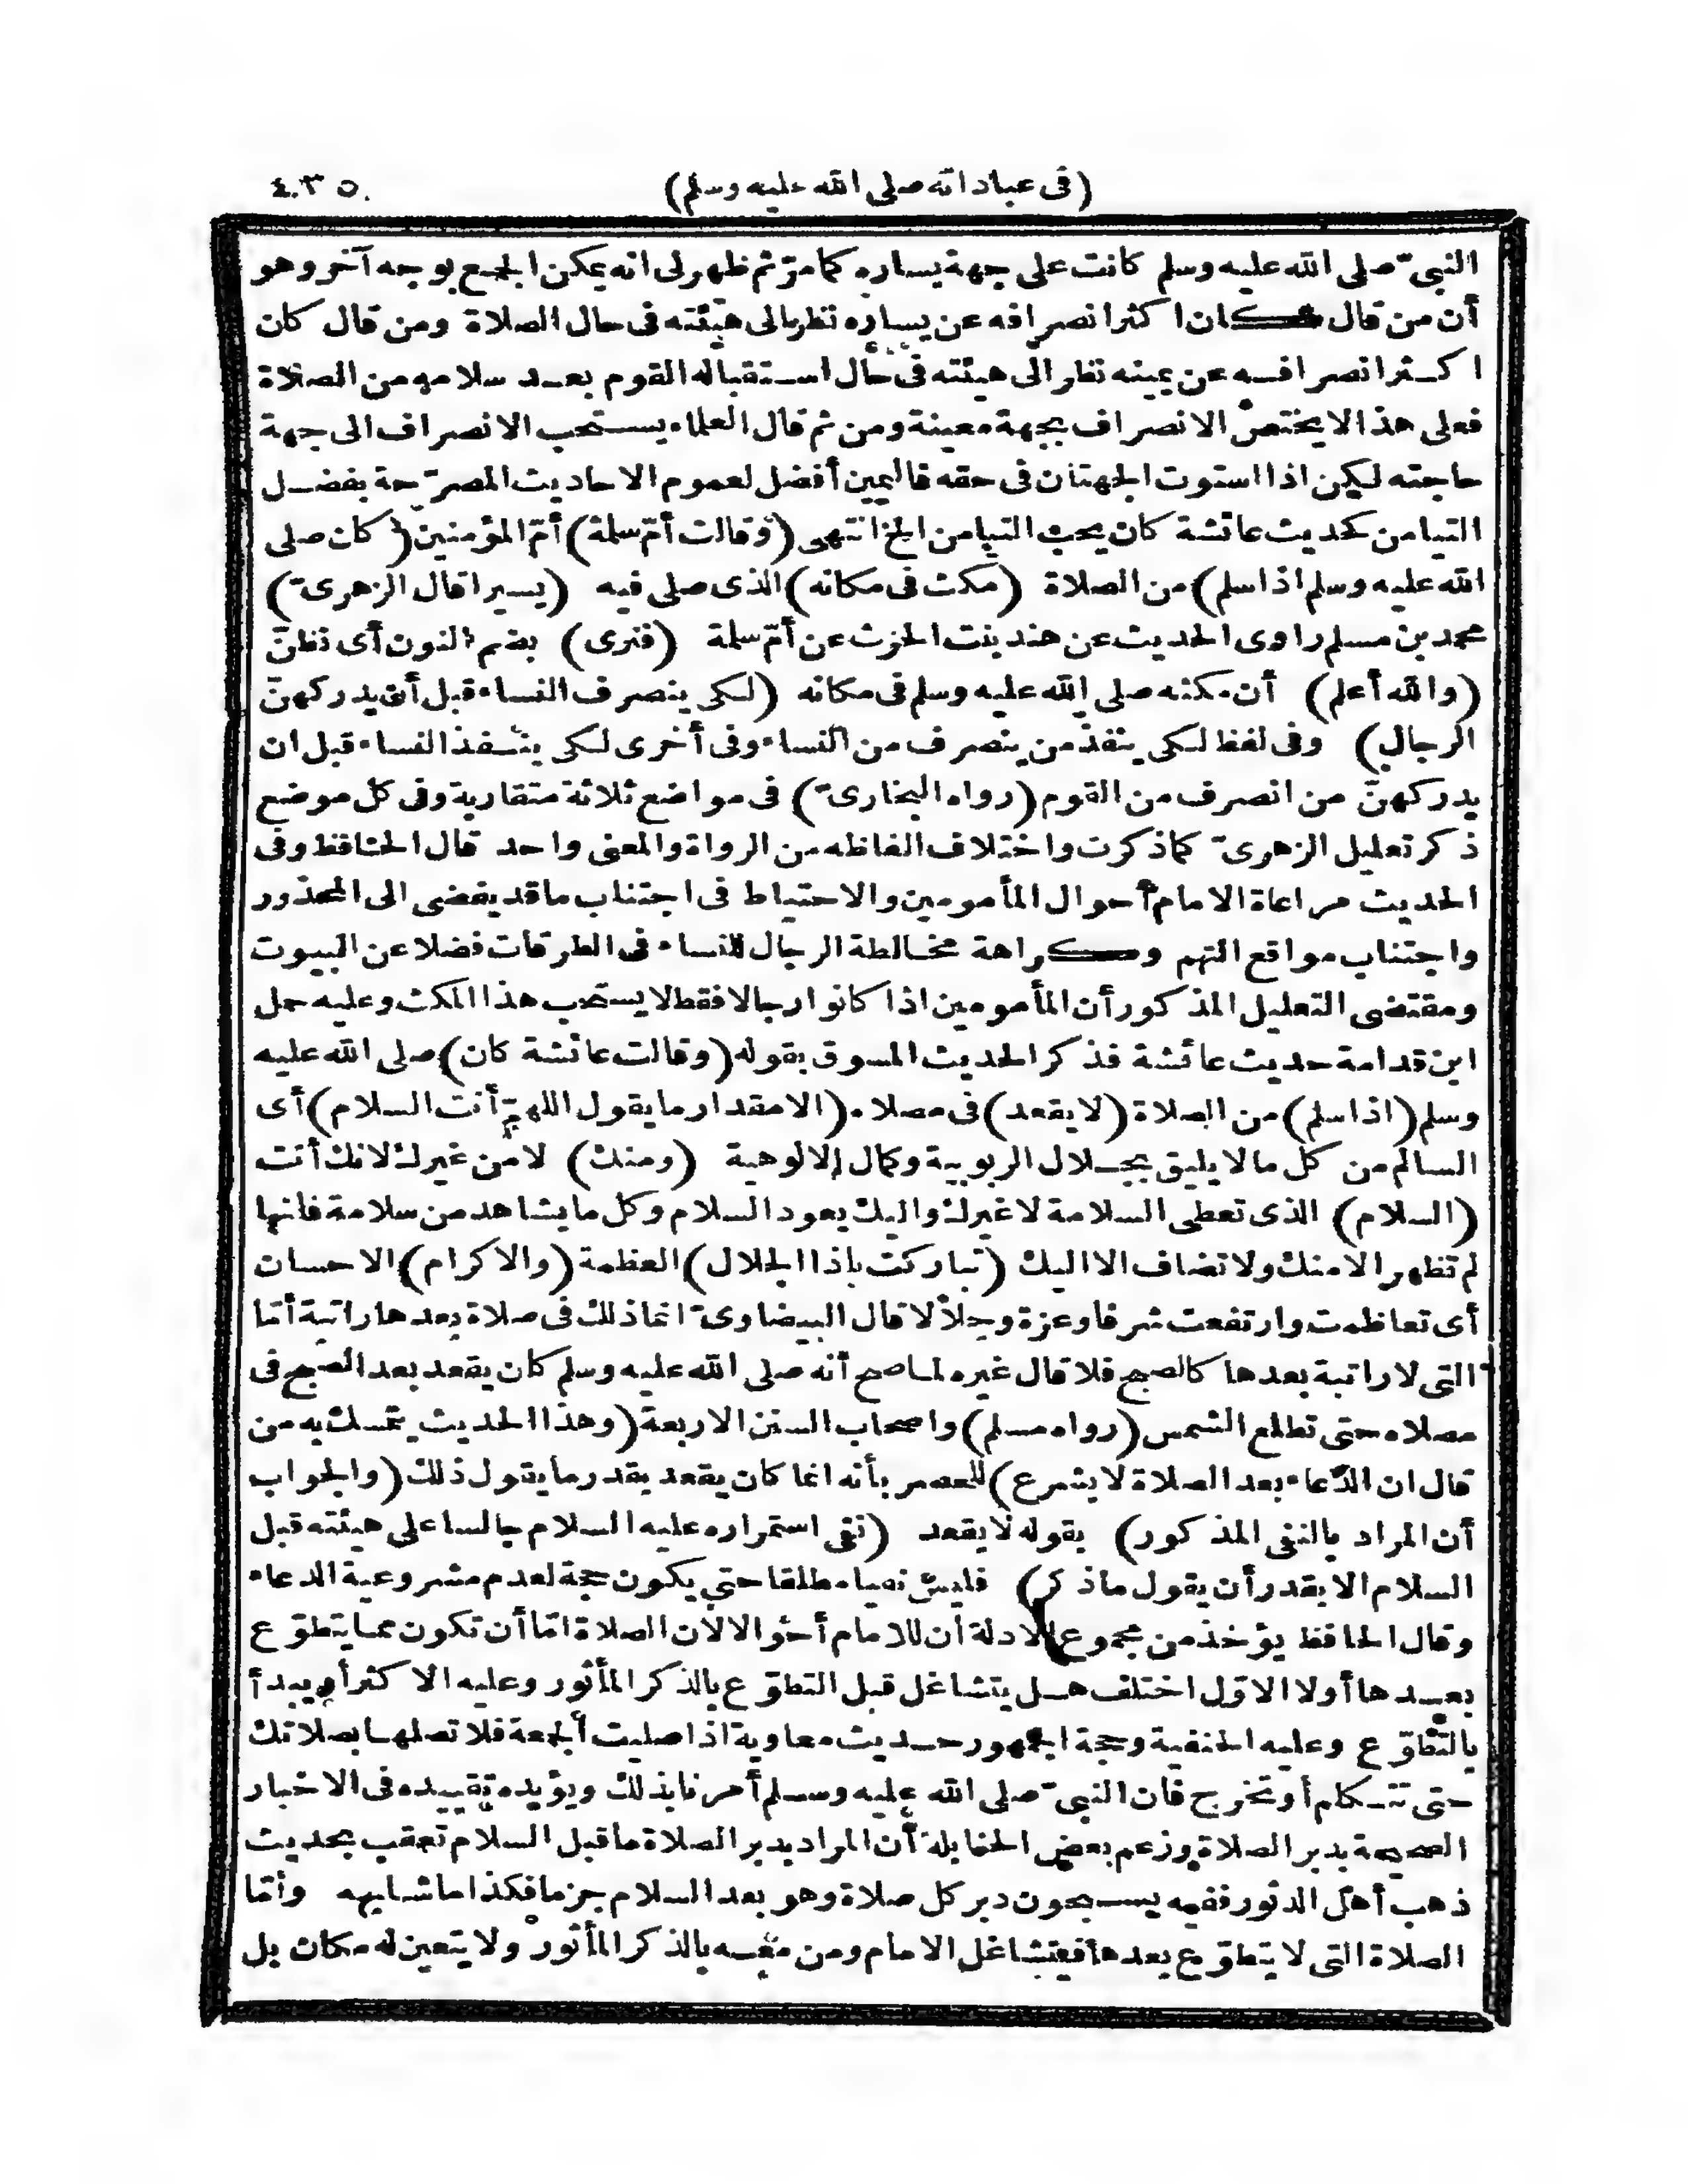 (فى عباداته صلى الله عليه وسلم)
٤٠٣٥
النبىّ صلى الله عليه وسلم كانت على جهة يساره كما مرّ ثم ظهر لى انه يمكن الجمع بوجه آخر وهو
أن من قال كان اكثر انصرافه عن يساره نظر الى هيئته فى حال الصلاة ومن قال كان
اكثر انصرافه عن يمينه نظر الى هيئته فى حال استقباله القوم بعد سلامه من الصلاة
فعلى هذا لا يختص الانصراف بجهة معينة ومن ثم قال العلماء يستحب الانصراف الى جهة
حاجته لكن اذا استوت الجهتان فى حقه فاليمين أفضل لعموم الاحاديث المصرّحة بفضل
التيامن كحديث عائشة كان يحب التيامن الخ انتهى (وقالت أمّ سلة) أمّ المؤمنين (كان صلى
الله عليه وسلم اذا سلم) من الصلاة (مكث فى مكانه) الذى صلى فيه (يسيرا قال الزهرىّ)
محمد بن مسلم راوى الحديث عن هند بنت الحرث عن أمّ سلة (فنرى) بضم النون أى نظنّ
(والله أعلم) أن مكثه صلى الله عليه وسلم فى مكانه (لكى ينصرف النساء قبل أن يدركهنّ
الرجال) وفى لفظ لكى ينفذ من ينصرف من النساء وفى أخرى لكى ينفذ النساء قبل ان
يدركهنّ من انصرف من القوم (رواه البخارىّ) فى مواضع ثلاثة متقاربة وفى كل موضع
ذكر تعليل الزهرىّ كما ذكرت واختلاف الفاظه من الرواة والمعنى واحد قال الحافظ وفى
الحديث مراعاة الامام أحوال المأمومين والاحتياط فى اجتناب ما قد يفضى الى المحذور
واجتناب مواقع التهم وكراهة مخالطة الرجال للنساء فى الطرقات فضلا عن البيوت
ومقتضى التعليل المذكور أن المأمومين اذا كانوا رجالا فقط لا يستحب هذا المكث وعليه حمل
ابن قدامة حديث عائشة فذكر الحديث المسوق بقوله (وقالت عائشة كان) صلى الله عليه
وسلم (اذا سلم) من الصلاة (لا يقعد) فى مصلاه (الا مقدار ما يقول اللهمّ أنت السلام) أى
السالم من كل ما لا يليق بجلال الربوبية وكمال الالوهية (ومنك) لا من غيرك لانك أنت
(السلام) الذى تعطى السلامة لا غيرك واليك يعود السلام وكل ما يشاهد من سلامة فانها
لم تظهر الا منك ولا تضاف الا اليك (تباركت ياذا الجلال) العظمة (والاكرام) الاحسان
أى تعاظمت وارتفعت شرفا وعزة وجلالا قال البيضاوىّ انما ذلك فى صلاة بعدها راتبة أمّا
التى لا راتبة بعدها كالصبح فلا قال غيره لما صح أنه صلى الله عليه وسلم كان يقعد بعد الصبح فى
مصلاه حتى تطلع الشمس (رواه مسلم) واصحاب السنن الاربعة (وهذا الحديث يتمسك به من
قال ان الدّعاء بعد الصلاة لا يشرع) للحصر بأنه انما كان يقعد بقدر ما يقول ذلك (والجواب
أن المراد بالنفى المذكور) بقوله لا يقعد (نفى استمراره عليه السلام جالسا على هيئته قبل
السلام الا بقدر أن يقول ما ذكر) فليس نفيا مطلقا حتى يكون حجة لعدم مشروعية الدعاء
وقال الحافظ يؤخذ من مجموع الادلة أن للامام أحوالا لان الصلاة امّا أن تكون مما يتطوّع
بعدها أولا الاوّل اختلف هل يتشاغل قبل التطوّع بالذكر المأثور وعليه الاكثر أم يبدأ
بالتطوّع وعليه الحنفية وحجة الجمهور حديث معاوية اذا صليت الجمعة فلا تصلها بصلاتك
حتى تتكلم أو تخرج فان النبىّ صلى الله عليه وسلم أمرنا بذلك ويؤيده تقييده فى الاخبار
الصحيحة بدبر الصلاة وزعم بعض الحنابلة أن المراد بدبر الصلاة ما قبل السلام تعقب بحديث
ذهب أهل الدثور ففيه يسبحون دبر كل صلاة وهو بعد السلام جزما فكذا ما شابهه وأمّا
الصلاة التى لا يتطوّع بعدها فيتشاغل الامام ومن معه بالذكر المأثور ولا يتعين له مكان بل